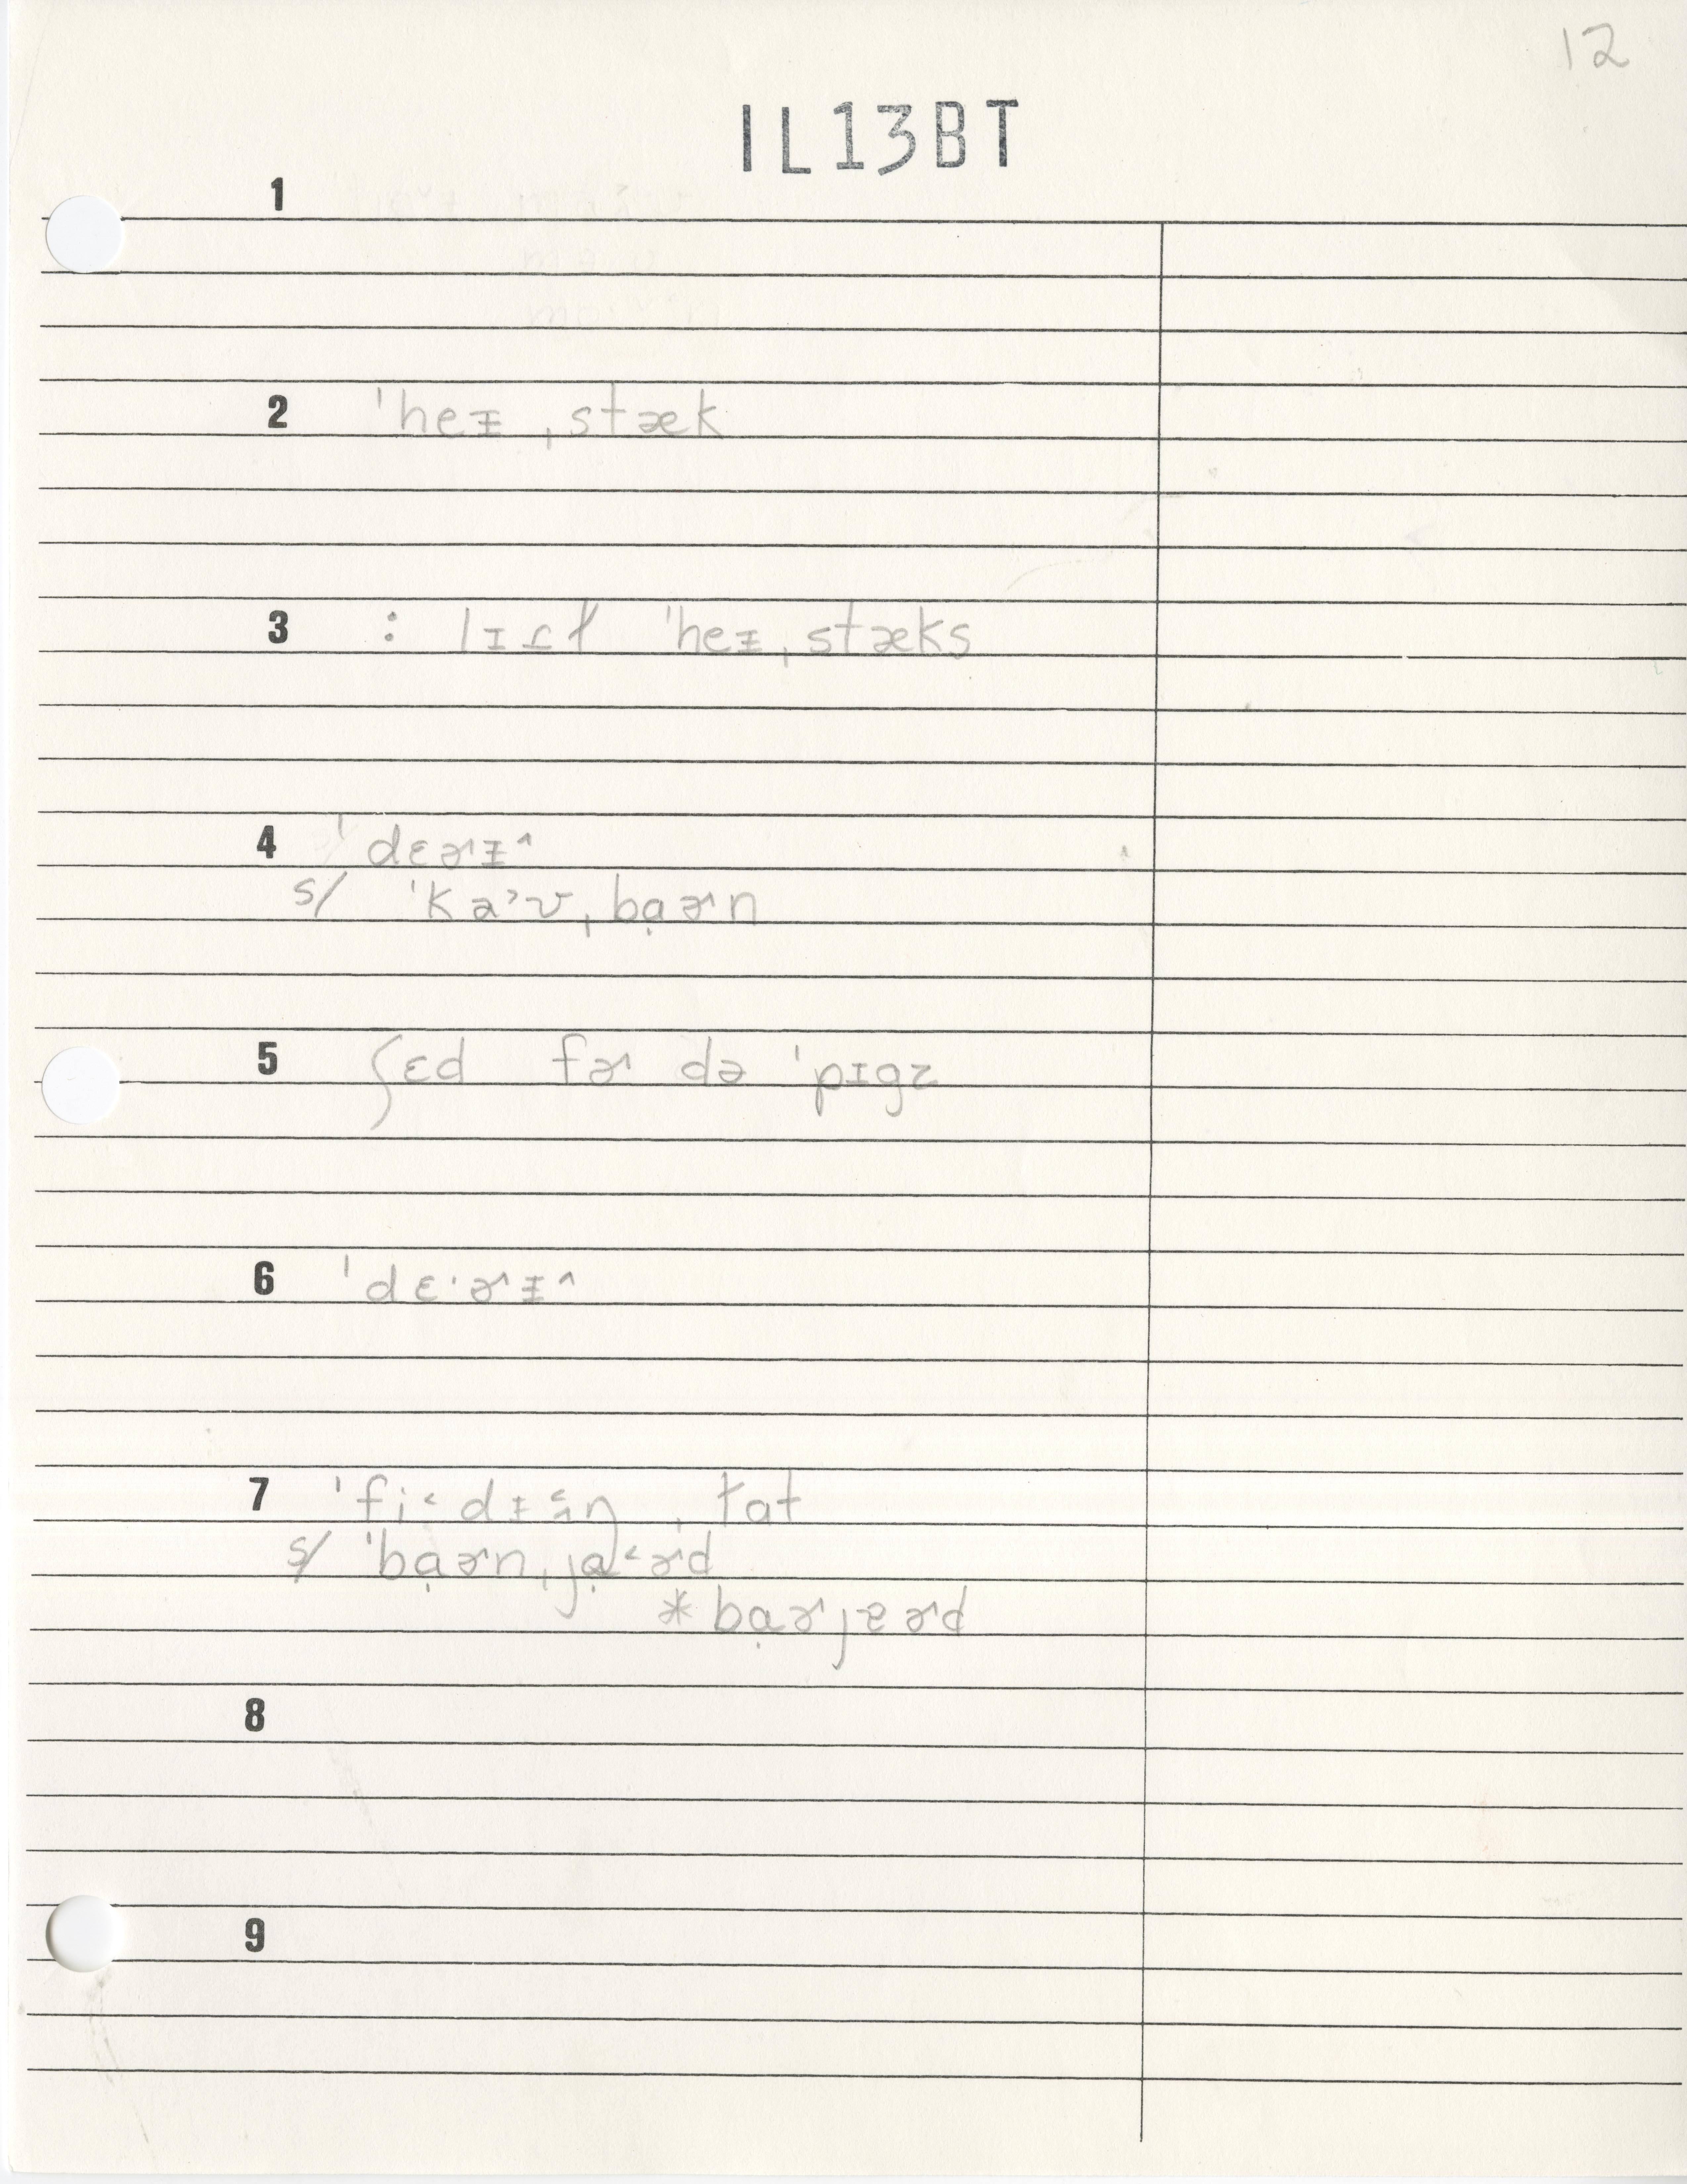 12
IL13BT
1
2 ˈheᵻ ˌstæk
3 : lɪɾɫ ˈheᵻˌstæks
4 ˈdɛɚᵻ^
s/ ˈka˃ʊˌbạɚn
5 ʃɛd fɚ də ˈpɪgz
6 ˈdɛ·ɚᵻ^
7 ˈfi˂dᵻ ŋ ˌɫat
s/ ˈbạɚnˌjạ˂ɚd
*bạɚjɐɚd
8
9